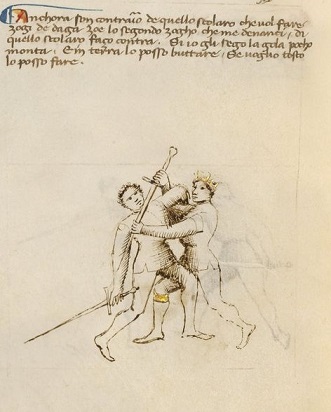 Anchora son contrario de quello scolaro che vol fare
zogi de daga zoe lo segondo zogho che me denanti, di
quello scolaro faço contra. Si io gli sego la gola pocho
monta. E in terra lo posso buttare, Se voglio tosto
lo posso fare.